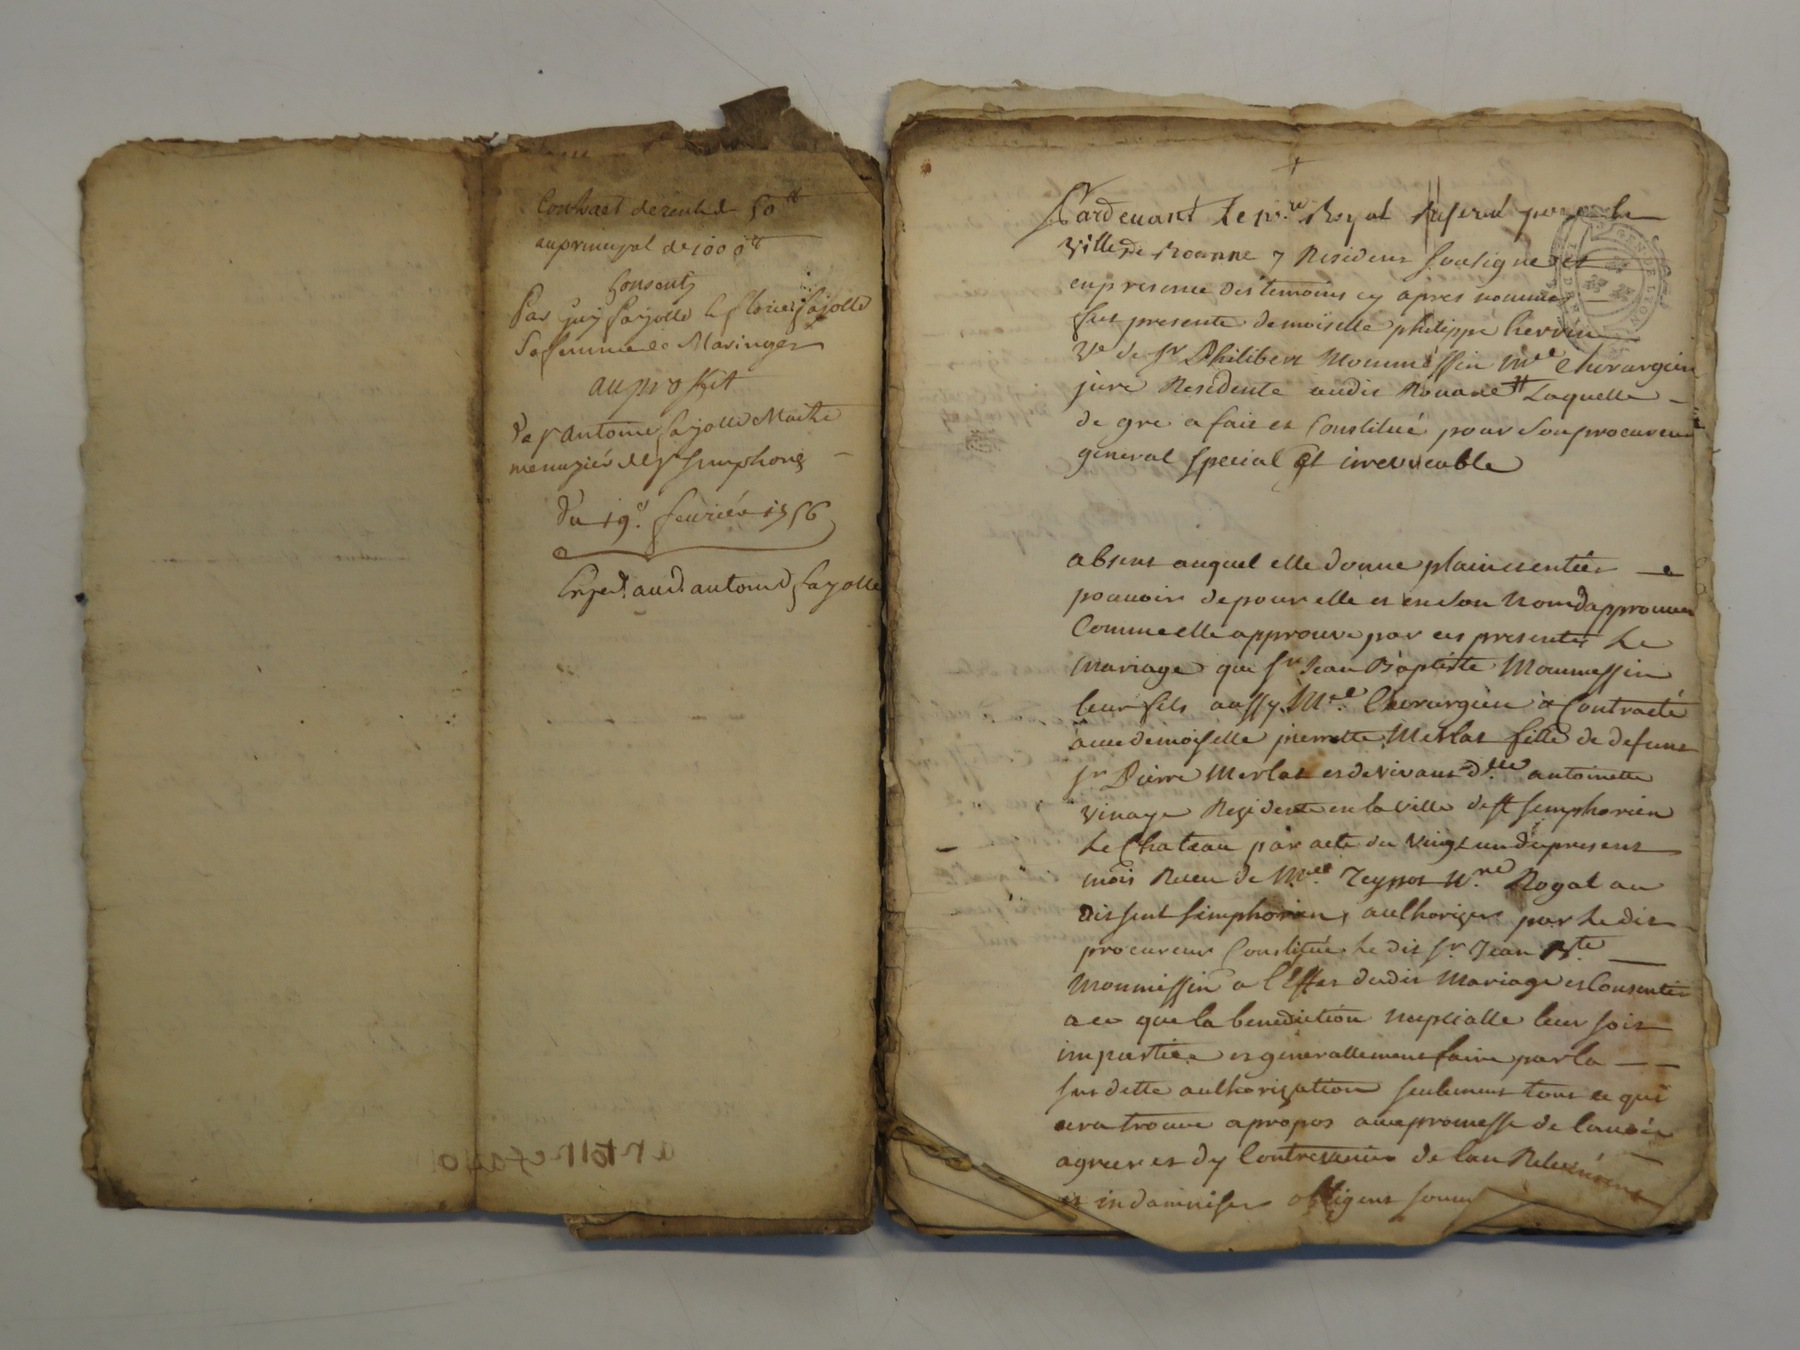 Contract de rente de 50ᵗᵗ
au principal de 1000ᵗᵗ
Consenty
Par Guy fayolle & florie fayolle
Sa femme de Maringes
au proffit
De Sʳ antoine fayolle Maitre
menuzier de Sᵗ Simphorⁿ
Du 19ᵉ. fevrier 1756
Exped. aud. antoine fayolle
Pardevant Le Nʳᵉ Royal Reservé pour la
Ville de Roanne y Resident Soussigné et
en presence des temoins cy apres nommés
fut presente demoiselle philippe Cherrin
Vᵉ de Sʳ Philibert Moumessin Mʳᵉ Chirurgien
juré Residente audit Roanne Laquelle
de gré a fait et Constitué pour Son procureur
general special Et irrevocable
absent auquel elle donne plain et entier
pouvoir de pour elle et en son Nom dapprouver
Comme elle approuve par ces presentes Le
Mariage que Sʳ Jean Baptiste Moumessin
leur fils aussy Mʳᵉ Chirurgien à Contracté
avec demoiselle pierrette Merlat fille de defunt
Sʳ Pierre Merlat et de vivante Dˡˡᵉ antoinette
Vinaye Residente en la Ville de St Simphorien
Le Chateau par acte du Vingt un du present
mois Receu de Mʳᵉ Teyssot Nʳᵉ Royal au
dit Saint Simphorien, authoriser par Le dit
procureur Constitué Le dit Sʳ Jean Bᵗᵉ
Moumessin a l'Effet dudit Mariage et Consentir
a ce que la benediction Nuptialle leur soit
impartiée et generallement faire par la
Susdette authorization seulement tout ce qui
sera trouvé apropos avec promesse de lavoir
agreer et dy Contrevenir de len Relever
et indamniser obligent soum